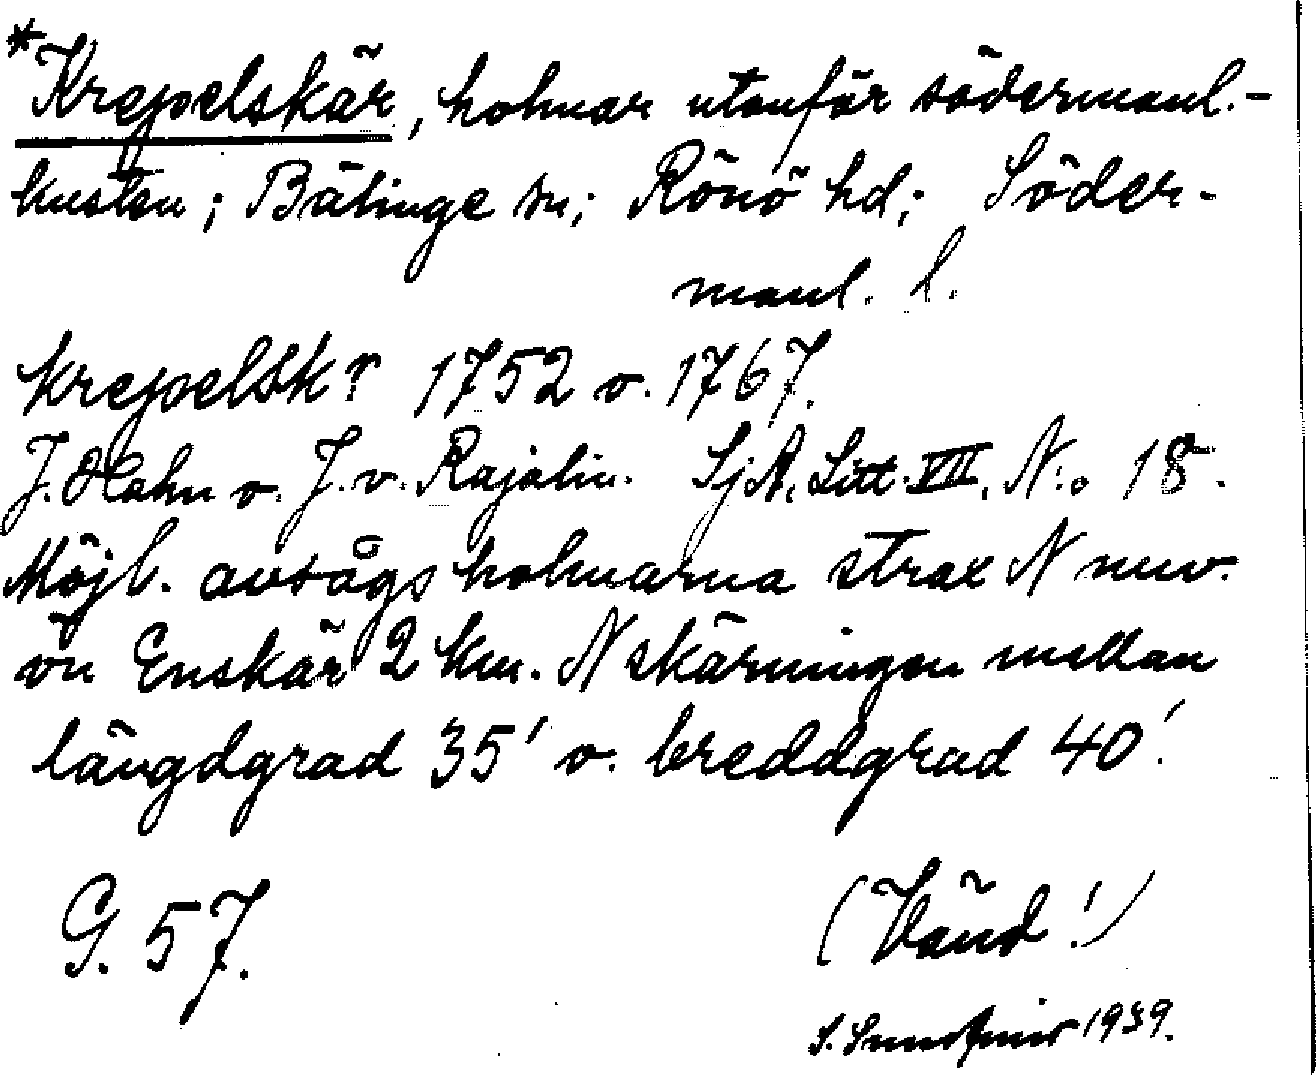 *Krepelskär, holmar utanför södermanl.-
kusten; Bälinge sn; Rönö hd; Söder-
manl. l.
Krepelsk r 1752 o. 1767.
J. Hahn o. J. v. Rajalin. SjA. Litt. VII, N:o 18.
Möjl. avsågs holmarna strax N nuv.
ön Enskär 2 km. N skärningen mellan
längdgrad 35' o. breddgrad 40'.
G. 57.
(Vänd!)
S. 1939.